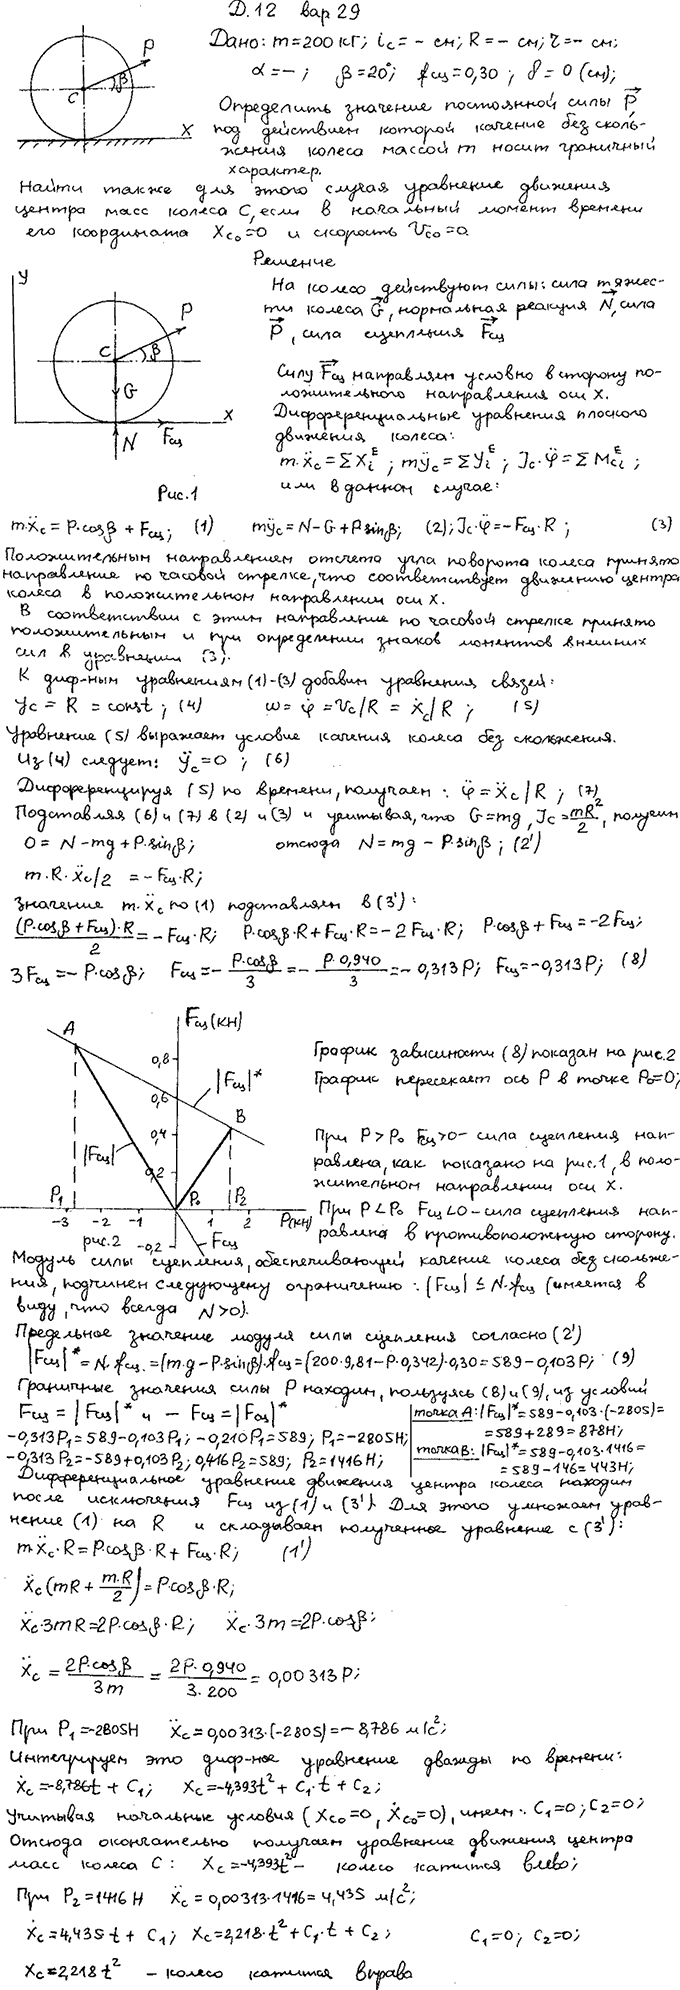 Д.12 вар 29
Дано: m=200 кг; iс= – см; R= – см; r= – см;
α= – ; β=20°; fсц=0,30 ; δ=0 (см);
P
β
C
X
Определить значение постоянной силы P,
под действием которой качение без сколь-
жения колеса массой m носит граничный
характер.
Найти также для этого случая уравнение движения
центра масс колеса C, если в начальный момент времени
его координата Xco=0 и скорость Vco=0.
Решение
На колесо действуют силы: сила тяжес-
ти колеса G, нормальная реакция N, сила
P, сила сцепления Fсц
Силу Fсц направляем условно в сторону по-
ложительного направления оси X.
Дифференциальные уравнения плоского
движения колеса:
m·ẍc=ΣXiᴱ; mÿc=ΣYiᴱ; Jc·φ̈=ΣMciᴱ;
или в данном случае:
y
P
C
β
G
X
N
Fсц
Рис.1
m·ẍc=P·cosβ+Fсц; (1) mÿc=N-G+P·sinβ; (2); Jc·φ̈=-Fсц·R; (3)
Положительным направлением отсчета угла поворота колеса принято
направление по часовой стрелке, что соответствует движению центра
колеса в положительном направлении оси X.
В соответствии с этим направление по часовой стрелке принято
положительным и при определении знаков моментов внешних
сил в уравнении (3).
К диф-ным уравнениям (1)-(3) добавим уравнения связей:
yc=R=const; (4) ω=φ̇=Vc/R=ẋc/R; (5)
Уравнение (5) выражает условие качения колеса без скольжения.
Из (4) следует: ÿc=0; (6)
Дифференцируя (5) по времени, получаем: φ̈=ẍc/R; (7)
Подставляя (6) и (7) в (2) и (3) и учитывая, что G=mg, Jc=mR²/2, получим
0=N-mg+P·sinβ; отсюда N=mg-P·sinβ; (2')
m·R·ẍc/2=-Fсц·R;
значение m·ẍc по (1) подставляем в (3'):
(P·cosβ+Fсц)·R/2=-Fсц·R; P·cosβ·R+Fсц·R=-2Fсц·R; P·cosβ+Fсц=-2Fсц;
3Fсц=-P·cosβ; Fсц=-P·cosβ/3=-P·0,940/3=-0,313P; Fсц=-0,313P; (8)
Fсц(кН)
A
0,8
|Fсц|*
0,6
B
0,4
|Fсц|
0,2
P1 P0 P2
-3 -2 -1 1 2 P(кН)
рис.2 -0,2 Fсц
График зависимости (8) показан на рис.2
График пересекает ось P в точке P0=0;
При P>P0 Fсц>0- сила сцепления нап-
равлена, как показано на рис.1, в поло-
жительном направлении оси X.
При P<P0 Fсц<0- сила сцепления нап-
равлена в противоположную сторону.
Модуль силы сцепления, обеспечивающей качение колеса без скольже-
ния, подчинен следующему ограничению: |Fсц|≤N·fсц (имеется в
виду, что всегда N>0).
Предельное значение модуля силы сцепления согласно (2')
|Fсц|*=N·fсц.=(m·g-P·sinβ)·fсц=(200·9,81-P·0,342)·0,30=589-0,103P; (9)
Граничные значения силы P находим, пользуясь (8) и (9), из условий
Fсц=|Fсц|* и -Fсц=|Fсц|*
-0,313P1=589-0,103P1; -0,210P1=589; P1=-2805Н;
-0,313P2=-589+0,103P2; 0,416P2=589; P2=1416Н;
точка A: |Fсц|*=589-0,103·(-2805)=
=589+289=878Н;
точка B: |Fсц|*=589-0,103·1416=
=589-146=443Н;
Дифференциальное уравнение движения центра колеса находим
после исключения Fсц из (1) и (3'). Для этого умножаем урав-
нение (1) на R и складываем полученное уравнение с (3'):
m·ẍc·R=P·cosβ·R+Fсц·R; (1')
ẍc(mR+m·R/2)=P·cosβ·R;
ẍc·3mR=2P·cosβ·R; ẍc·3m=2P·cosβ;
ẍc=2P·cosβ/3m=2P·0,940/3·200=0,00313P;
При P1=-2805Н ẍc=0,00313·(-2805)=-8,786 м/с²;
Интегрируем это диф-ное уравнение дважды по времени:
ẋc=-8,786t+C1; xc=-4,393t²+C1·t+C2;
Учитывая начальные условия (Xco=0, Ẋco=0), имеем: C1=0; C2=0;
Отсюда окончательно получаем уравнение движения центра
масс колеса C: Xc=-4,393t²- колесо катится влево;
При P2=1416Н ẍc=0,00313·1416=4,435 м/с²;
ẋc=4,435t+C1; xc=2,218·t²+C1·t+C2; C1=0; C2=0;
Xc=2,218t² - колесо катится вправо